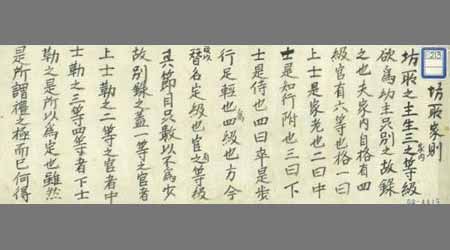 213
坊取家則
坊取之主生之等級
欲爲幼主別之故錄
之也夫家内自格有四
級官有六等也格一曰
上士是家老也二曰中
士是知行附也三曰下
士是侍也四曰卒是步
行足輕也四級也方今
替名定級也官之等級
其節目只數以不爲少
故別錄之蓋一等之官者
上士勤之二等之官者中
士勤之三等四等者下士
勤之是所以爲定也雖然
是所謂禮之極而已何得